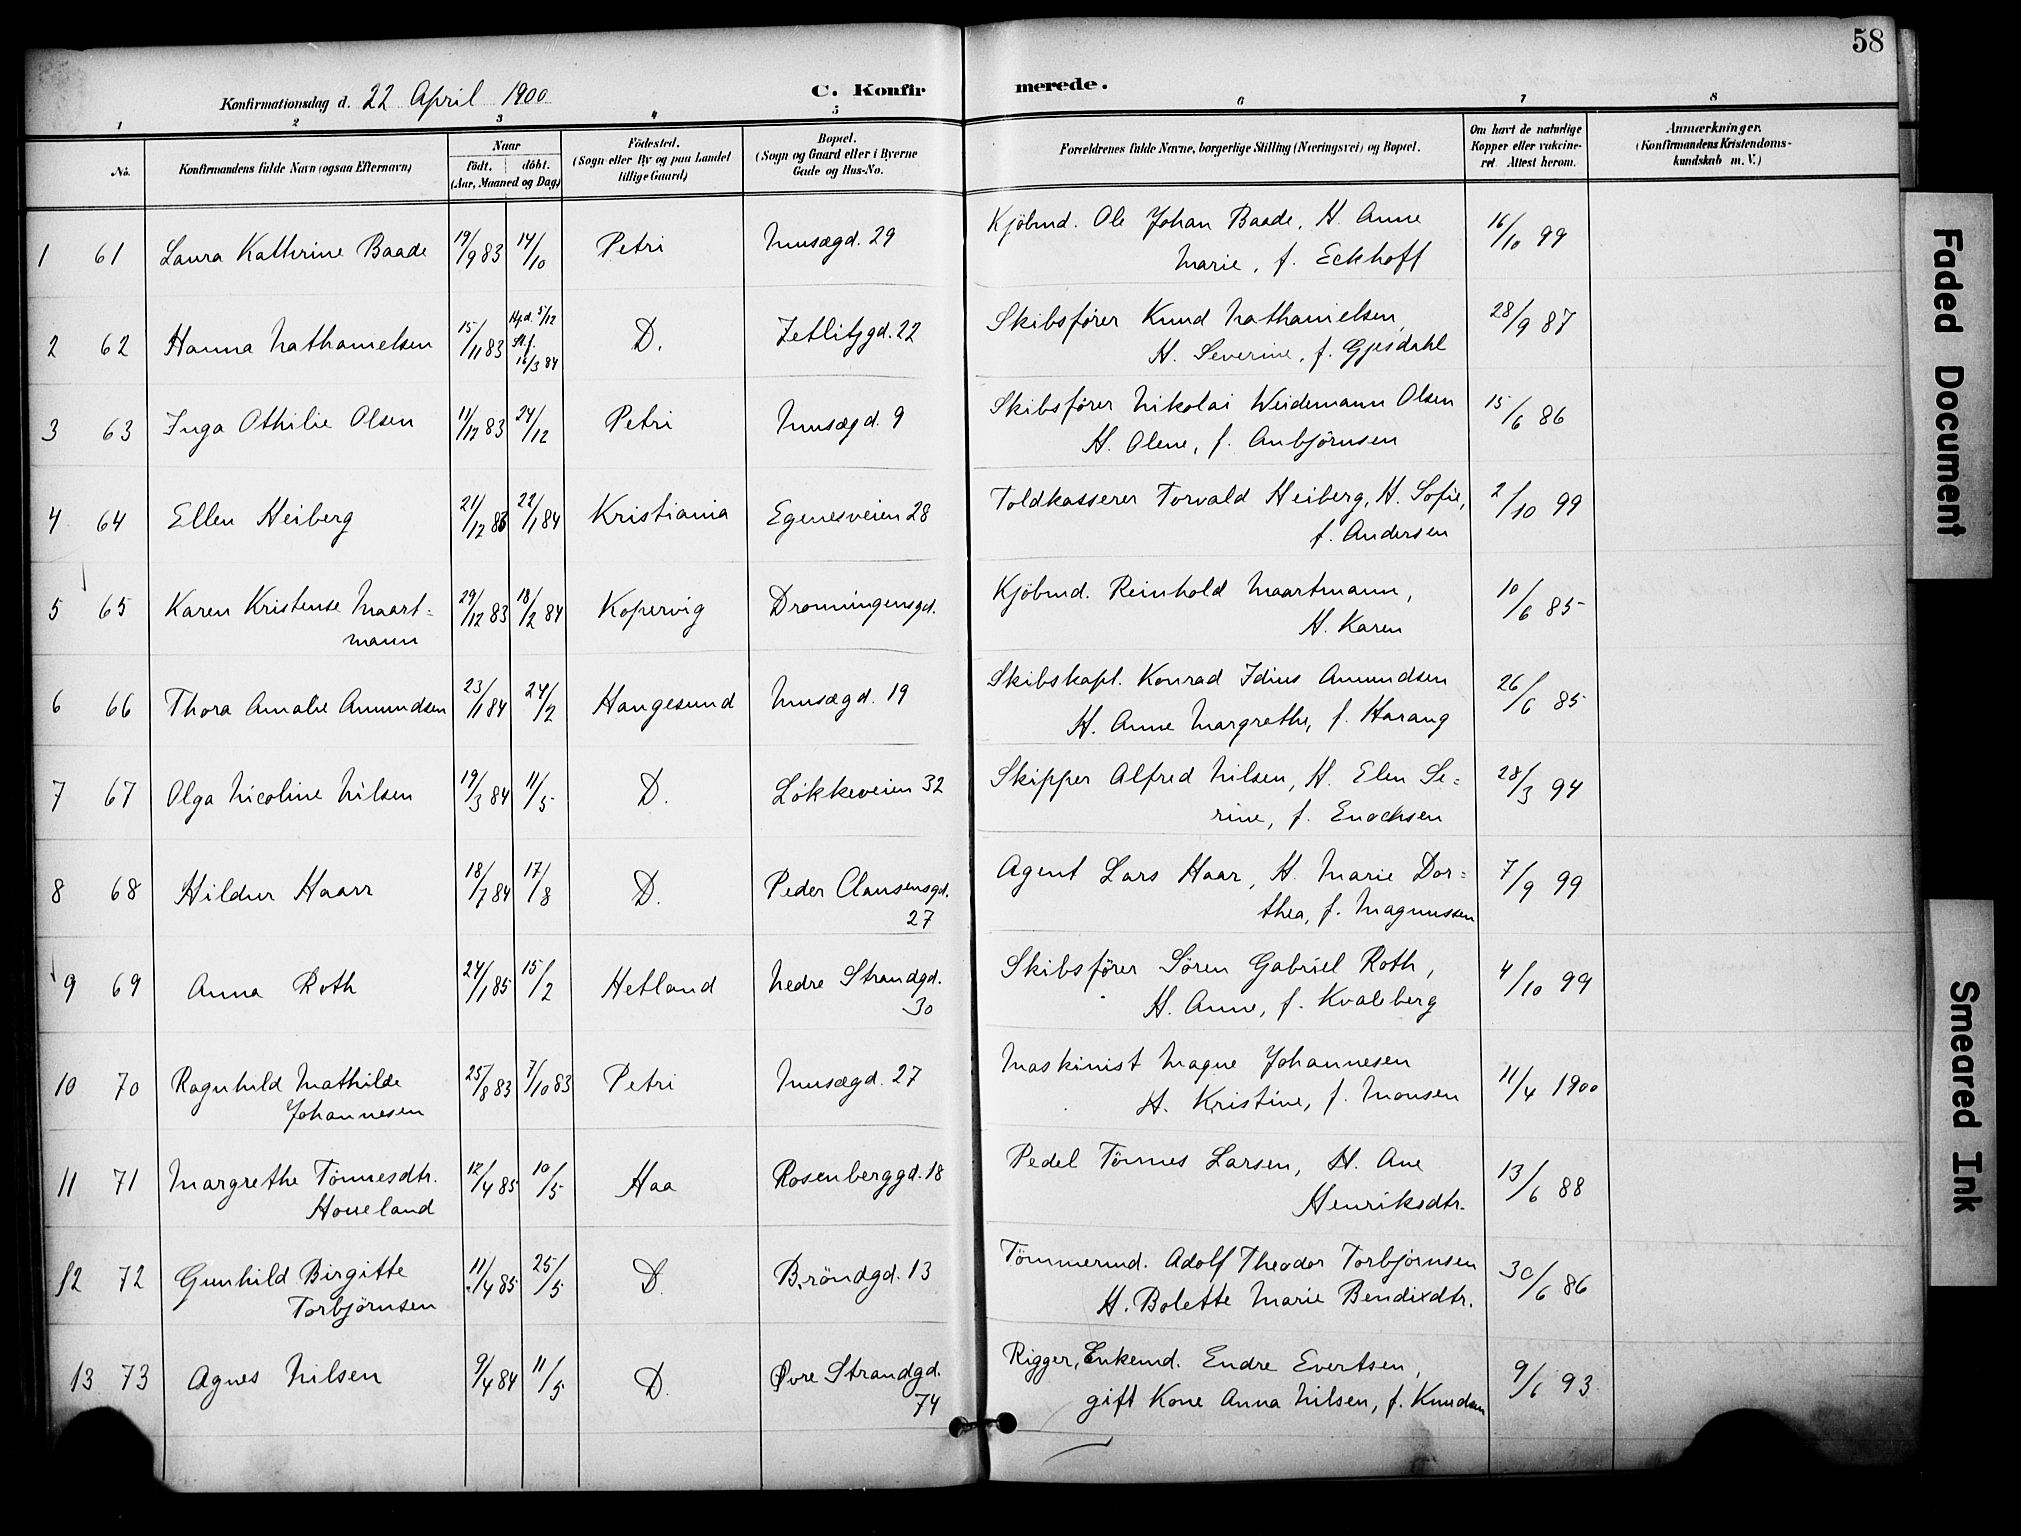 58
Konfirmationsdag d. 22 April 1900
C. Konfirmerede.
1 2 3 4 5 6 7 8
No.
Konfirmandens fulde Navn (ogsaa Efternavn)
Naar
födt. döbt.
(Aar, Maaned og Dag)
Födested.
(Sogn eller By og paa Landet
tillige Gaard)
Bopæl.
(Sogn og Gaard eller i Byerne
Gade og Hus-No.
Forældrenes fulde Navne, borgerlige Stilling (Næringsvei) og Bopæl.
Om havt de naturlige
Kopper eller vakcine-
ret. Attest herom.
Anmærkninger.
(Konfirmandens Kristendoms-
kundskab m. V.)
1 61 Laura Kathrine Baade 19/9 83 14/10 Petri Musægd. 29 Kjöbmd. Ole Johan Baade, H. Anne 16/10 99
Marie, f. Eckhoff
2 62 Hanna Nathanielsen 15/11 83 Hjd. 5/12 St.f. 16/3 84 D. Zetlitzgd. 22 Skibsfører Knud Nathanielsen, 28/9 87
H. Severine, f. Gjesdahl
3 63 Inga Othilie Olsen 11/12 83 24/12 Petri Musægd. 9 Skibsfører Nikolai Weidemann Olsen 15/6 86
H. Olene, f. Anbjörnsen
4 64 Ellen Heiberg 21/12 83 22/1 84 Kristiania Egenesveien 28 Toldkasserer Torvald Heiberg, H. Sofie, 2/10 99
f. Andersen
5 65 Karen Kristense Maart= 29/12 83 18/2 84 Kopervig Dronningensgd. Kjöbmd. Reinhold Maartmann, 10/6 85
mann
H. Karen
6 66 Thora Amalie Amundsen 23/1 84 24/2 Haugesund Musægd. 19 Skibskapt. Konrad Idius Amundsen 26/6 85
H. Anne Margrethe, f. Harang
7 67 Olga Nicoline Nilsen 19/3 84 11/5 D. Lökkeveien 32 Skipper Alfred Nilsen, H. Elen Se= 28/3 94
rine, f. Enochsen
8 68 Hildur Haarr 18/7 84 17/8 D. Peder Clausensgd. Agent Lars Haar, H. Marie Dor= 7/9 99
27
thea, f. Magnussen
9 69 Anna Roth 24/1 85 15/2 Hetland Nedre Strandgd. Skibsfører Sören Gabriel Roth, 4/10 99
30
H. Anne, f. Kvaleberg
10 70 Ragnhild Mathilde 25/8 83 7/10 83 Petri Musægd. 27 Maskinist Magne Johannesen 11/4 1900
Johannesen
H. Kristine, f. Monsen
11 71 Margrethe Tönnesdtr. 12/4 85 10/5 Haa Rosenberggd. 18 Pedel Tönnes Larsen, H. Ane 13/6 88
Houeland
Henriksdtr.
12 72 Gunhild Birgitte 11/4 85 25/5 D. Bröndgd. 13 Tömmermd. Adolf Theodor Torbjörnsen 30/6 86
Torbjörnsen
H. Bolette Marie Bendixdtr.
13 73 Agnes Nilsen 9/4 84 11/5 D. Øvre Strandgd. Rigger, Enkemd. Endre Evertsen, 9/6 93
74
gift Kone Anna Nilsen, f. Knudsen
Faded Document
Smeared Ink